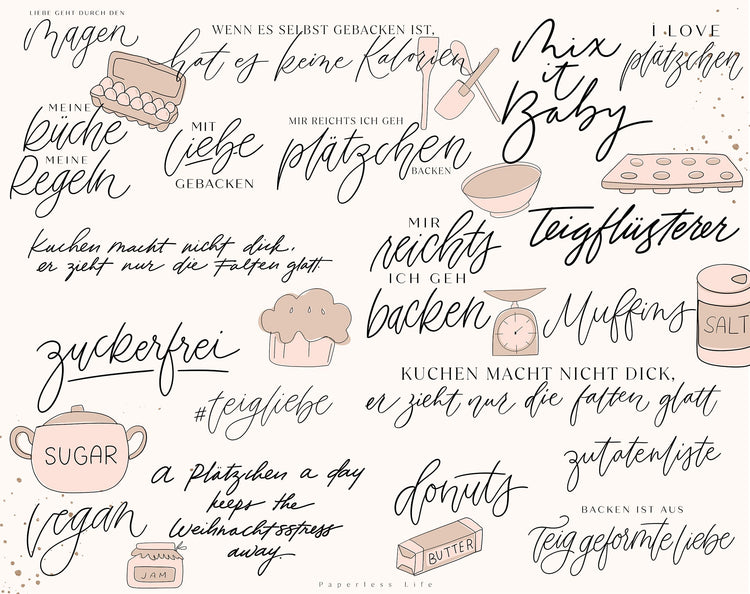 LIEBE GEHT DURCH DEN
Magen
WENN ES SELBST GEBACKEN IST,
hat es keine Kalorien
Mix
it
Baby
I LOVE
plätzchen
MEINE
küche
MEINE
Regeln
MIT
Liebe
GEBACKEN
MIR REICHTS ICH GEH
plätzchen
BACKEN
Kuchen macht nicht dick.
er zieht nur die Falten glatt.
MIR
reichts
ICH GEH
backen
Teigflüsterer
Muffins
SALT
zuckerfrei
#teigliebe
KUCHEN MACHT NICHT DICK,
er zieht nur die falten glatt
SUGAR
a Plätzchen a day
keeps the
Weihnachtsstress
away.
donuts
zutatenliste
vegan
JAM
BUTTER
BACKEN IST AUS
Teig geformte liebe
Paperless Life